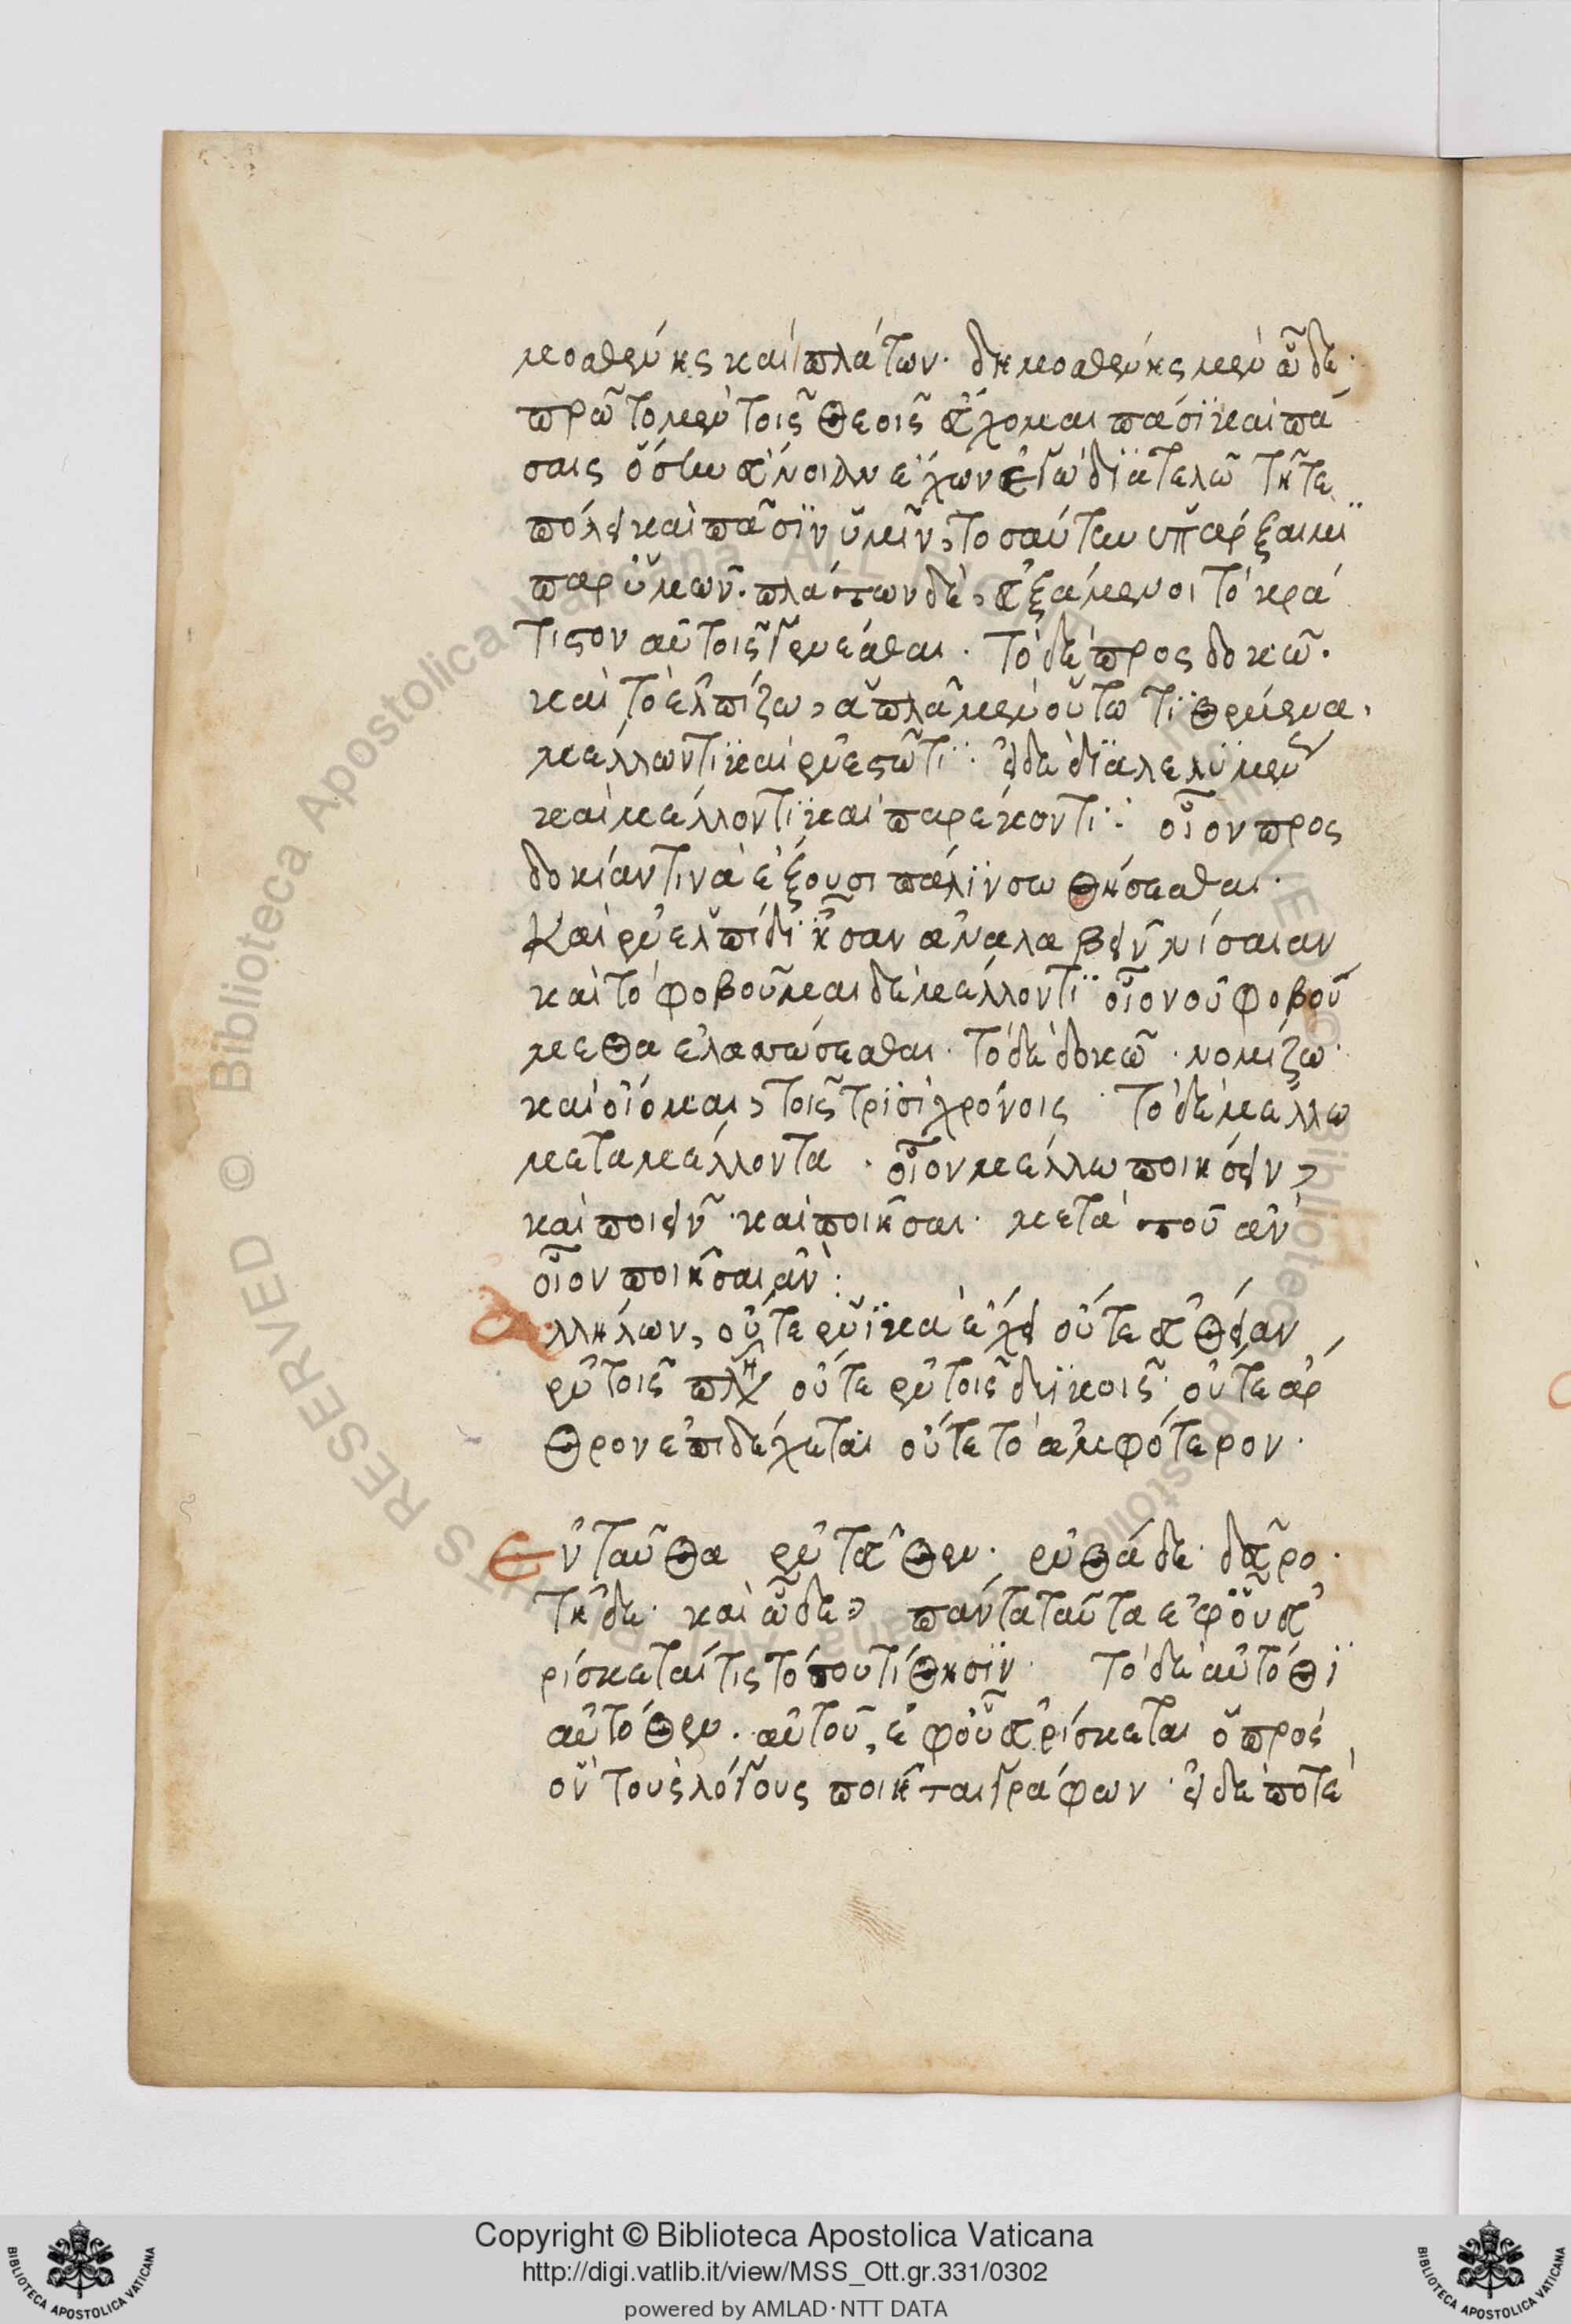 μοσθένης καὶ πλάτων· δημοσθένης μὲν ὧδε·
πρῶτον μὲν τοῖς θεοῖς εὔχομαι πᾶσϊ καὶ πά
σαις ὅσην εὔνοιαν ἔχων ἐγὼ δϊατελῶ τῆτε
πόλει καὶ πᾶσϊν ὑμῖν, τοσαύτην ὑπάρξαι μοι
παρ' ὑμῶν. πλάττων δὲ, εὐξάμενοι τὸ κρά
τιστον αὐτοῖς γενέσθαι. τὸ δὲ προσδοκῶ.
καὶ τὸ ἐλπίζω, ἁπλᾶ μὲν οὕτω τϊθέμενα,
μέλλωντϊ καὶ ἐνεστῶτϊ: εἰ δὲ δϊαλελϋμέν
καὶ μέλλοντϊ καὶ παρέκοντϊ: οἷον προς
δοκίαν τινὰ ἕξουσι πάλϊν σωθήσεσθαι.
Καὶ ἐν ἐλπίδϊ ἦσαν ἀναλαβεῖν νίσαιαν
καὶ τὸ φοβοῦμαι δὲ μέλλοντϊ οἷον οὐ φοβού
μεθα ἐλαττώσεσθαι. τὸ δὲ δοκῶ. νομίζω.
καὶ οἴομαι, τοῖς τρϊσὶ χρόνοις τὸ δὲ μέλλω
μετα μέλλοντα. οἷον μέλλω ποιήσειν,
καὶ ποιεῖν. καὶ ποιῆσαι. μετὰ τοῦ ἂν
οἷον ποιῆσαι ἄν:
Αλλήλων, οὔτε ἑνϊκὰ ἔχει οὔτε εὐθεῖαν
ἐν τοῖς πλη οὔτε ἐν τοῖς δυϊκοῖς. οὔτε ἄρ
θρον ἐπιδέχεται οὔτε τὸ ἀμφότερον.
Ενταῦθα ἐντεῦθεν. ἐνθάδε. δεῦρο.
τῆδε. καὶ ὧδε, πάντα ταῦτα ἐφ' οὗ εὑ
ρίσκεταί τις τόπου τίθησϊν. τὸ δὲ αὐτόθϊ
αὐτόθεν. αὐτοῦ, ἐφ' οὗ εὑρίσκεται ὁ πρὸς
ὃν τοὺς λόγους ποιεῖται γράφων. εἰ δέ ποτε